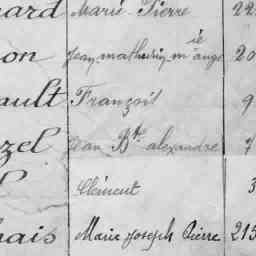 nard Marie Pierre 22
on Jean mathurin m ie ange 20
ault François 9
zel Jean Bte alexandre 7
Clément 3
hais Marie Joseph Pierre 215